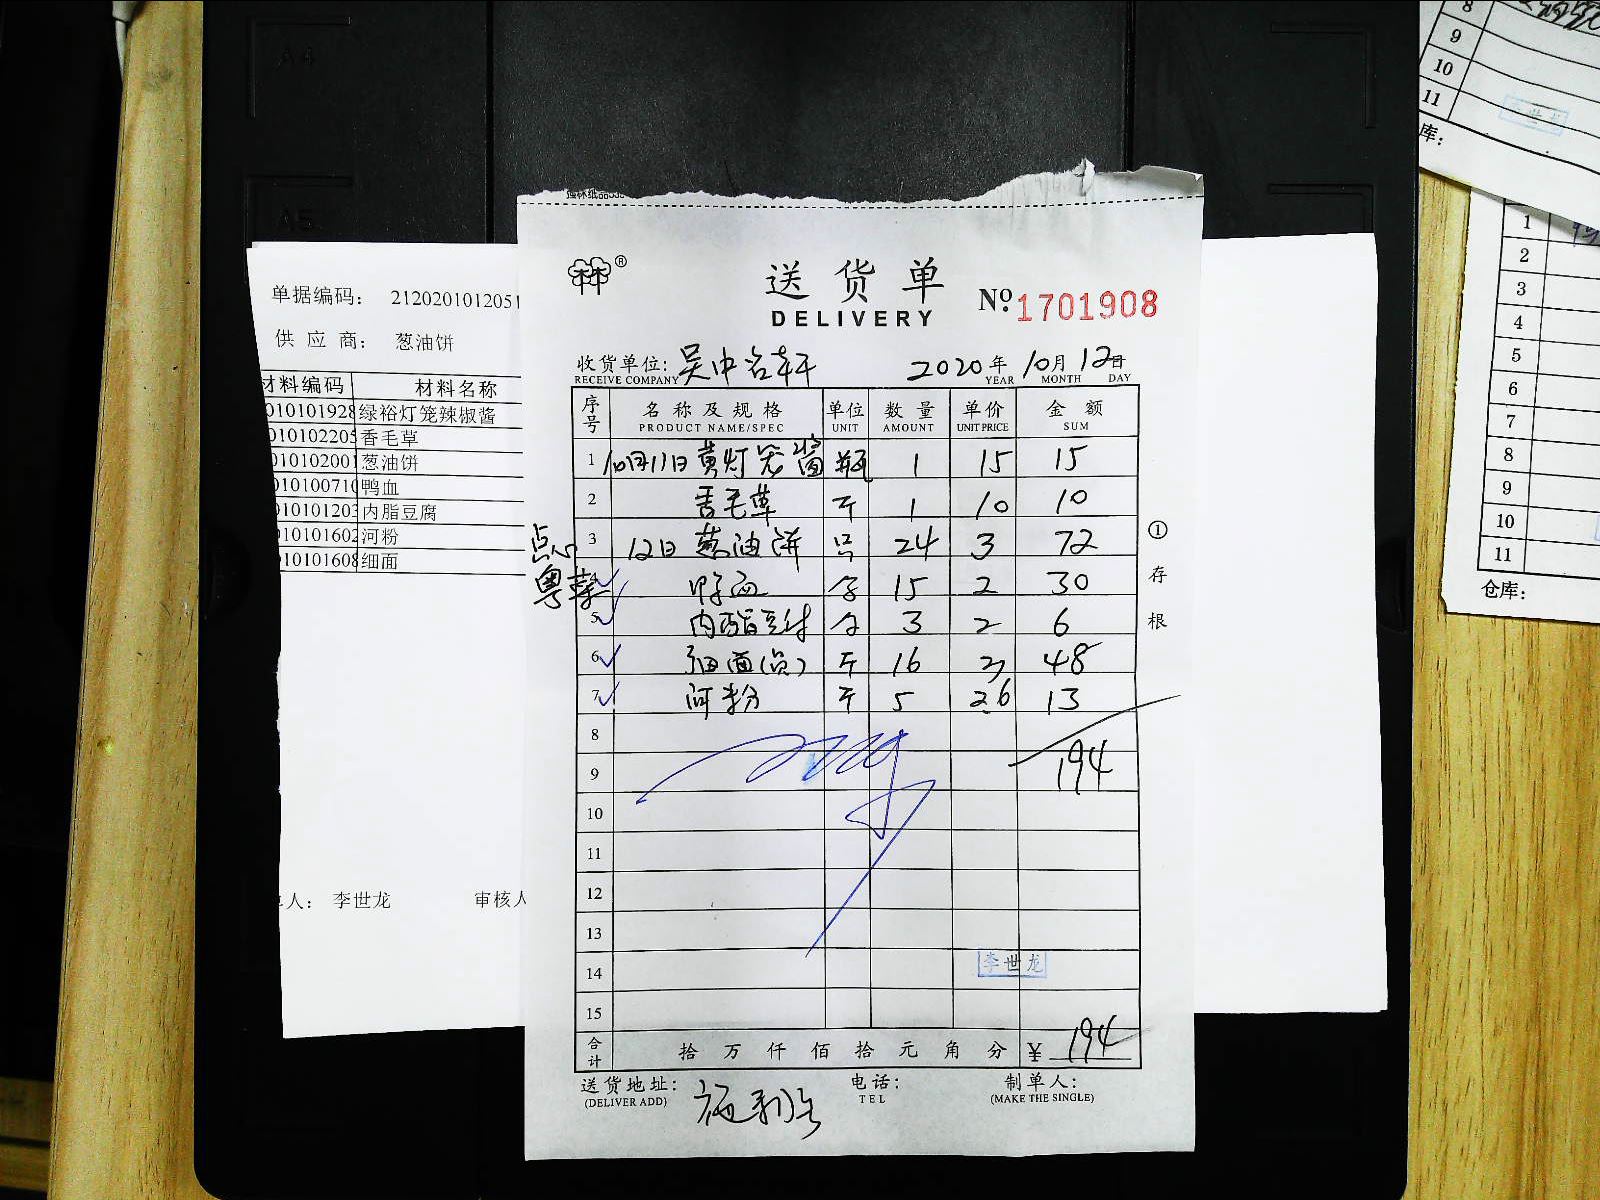 送货单
DELIVERY
№ 1701908
收货单位: 吴中名轩 2020年10月12日
RECEIVE COMPANY YEAR MONTH DAY
序号 名称及规格 单位 数量 单价 金额
PRODUCT NAME/SPEC UNIT AMOUNT UNIT PRICE SUM
1 10月11日 黄灯笼酱 瓶 1 15 15
2 香毛草 斤 1 10 10
3 12日 葱油饼 只 24 3 72
鸭血 15 2 30
5 内酯豆付 3 2 6
6 细面 斤 16 3 48
7 河粉 斤 5 2.6 13
8
9 194
10
11
12
13
14 李世龙
15
合计 拾万仟佰拾元角分 ¥ 194
送货地址: 电话: 制单人:
(DELIVER ADD) TEL (MAKE THE SINGLE)
点心
粤菜
①存根
单据编码: 2120201012051
供应商: 葱油饼
材料编码 材料名称
010101928 绿裕灯笼辣椒酱
010102205 香毛草
010102001 葱油饼
010100710 鸭血
010101203 内脂豆腐
010101602 河粉
010101608 细面
人: 李世龙 审核人
A4
A5
8
9
10
11
李世龙
库:
1
2
3
4
5
6
7
8
9
10
11
仓库: